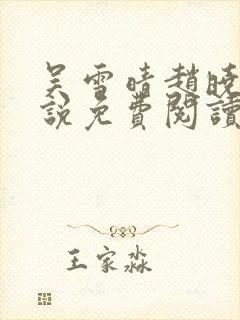 吴雪晴趙曉
說免費閱讀
王家淼